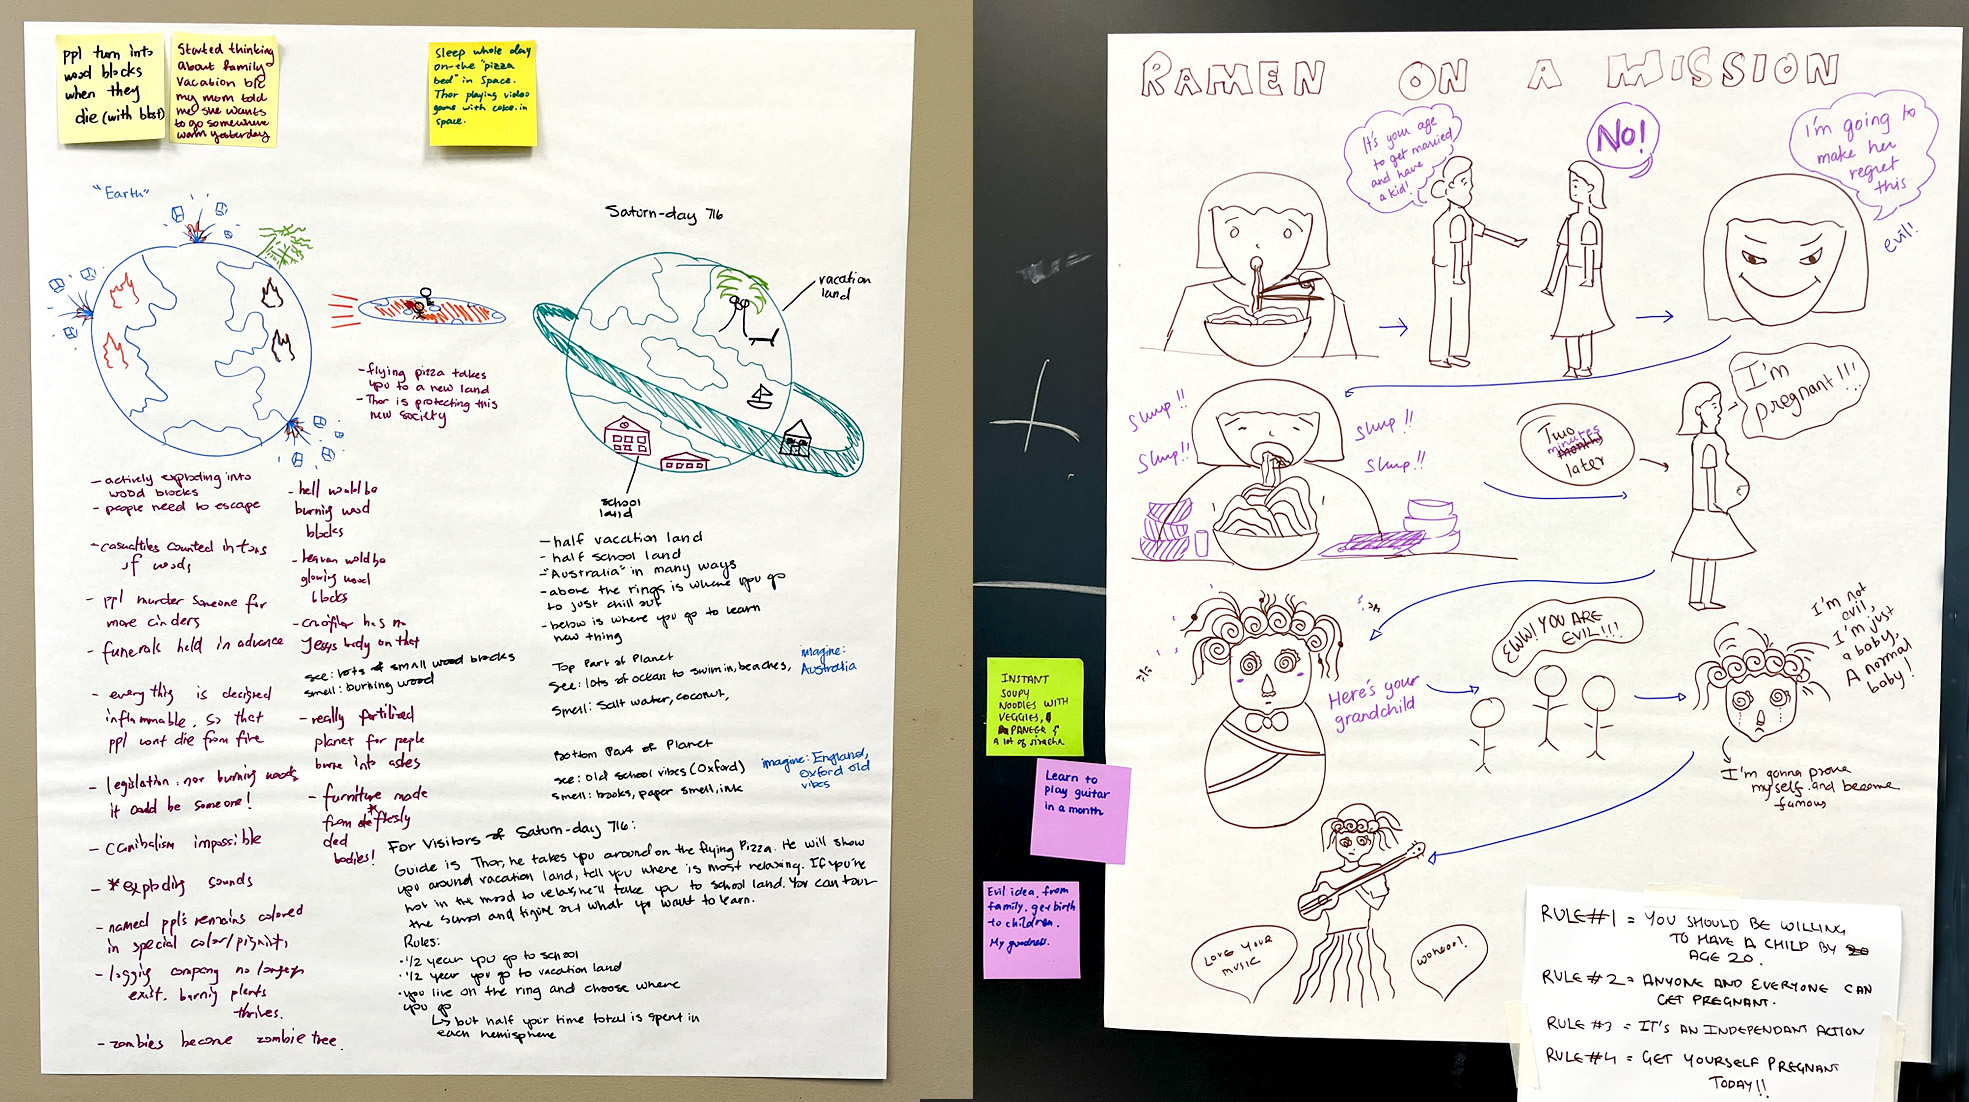 ppl turn into
wood blocks
when they
die (with bbst)
Started thinking
about family
vacation b/c
my mom told
me she wants
to go somewhere
warm yesterday
Sleep whole day
on the "pizza
bed" in Space.
Thor playing video
game with coke in
space.
"Earth"
Saturn-day 716
vacation
land
- flying pizza takes
you to a new land
- Thor is protecting this
new society
school
land
- actively exploding into
wood blocks
- people need to escape
- casualties counted in tons
of woods
- ppl murder someone for
more cinders
- funerals held in advance
- everything is designed
inflammable, so that
ppl wont die from fire
- legislation: nor burning woods
it could be someone!
- cannibalism impossible
- *exploding sounds
- named ppl's remains colored
in special color/pigment,
- logging company no longer
exist. burning plants
thrives.
- zombies become zombie tree.
- hell would be
burning wood
blocks
- heaven would be
glowing wood
blocks
- crucifier has no
Jesus body on that
see: lots of small wood blocks
smell: burning wood
- really fertilized
planet for people
burne into ashes
- furniture made
from freshly
ded
bodies!
- half vacation land
- half school land
- "Australia" in many ways
- above the rings is where you go
to just chill out
- below is where you go to learn
new thing
Top Part of Planet
see: lots of ocean to swim in, beaches,
smell: Salt water, coconut,
imagine:
Australia
Bottom Part of Planet
see: old school vibes (Oxford)
smell: books, paper smell, ink
imagine: England,
Oxford old
vibes
For Visitors of Saturn-day 716:
Guide is Thor, he takes you around on the flying Pizza. He will show
you around vacation land, tell you where is most relaxing. If you're
not in the mood to relax, he'll take you to school land. You can tour
the school and figure out what you want to learn.
Rules:
• 1/2 year you go to school
• 1/2 year you go to vacation land
• you live on the ring and choose where
you go
↳ but half your time total is spent in
each hemisphere
RAMEN ON A MISSION
It's your age
to get married
and have
a kid!
No!
I'm going to
make her
regret
this
evil!
Slurp!!
Slurp!!
Slurp!!
Slurp!!
Two
minutes
months
later
I'm
pregnant!!!
Here's your
grandchild
EWW! YOU ARE
EVIL!!!
I'm not
evil,
I'm just
a baby,
A normal
baby!
I'm gonna prove
myself and become
famous
LOVE YOUR
MUSIC
WOHOOO!
INSTANT
SOUPY
NOODLES WITH
VEGGIES,
PANEER &
A lot of siracha
Learn to
play guitar
in a month
Evil idea, from
family. get birth
to children.
My goodness.
RULE #1 = YOU SHOULD BE WILLING
TO HAVE A CHILD BY 20
AGE 20.
RULE #2 = ANYONE AND EVERYONE CAN
GET PREGNANT.
RULE #3 = IT'S AN INDEPENDANT ACTION
RULE #4 = GET YOURSELF PREGNANT
TODAY!!